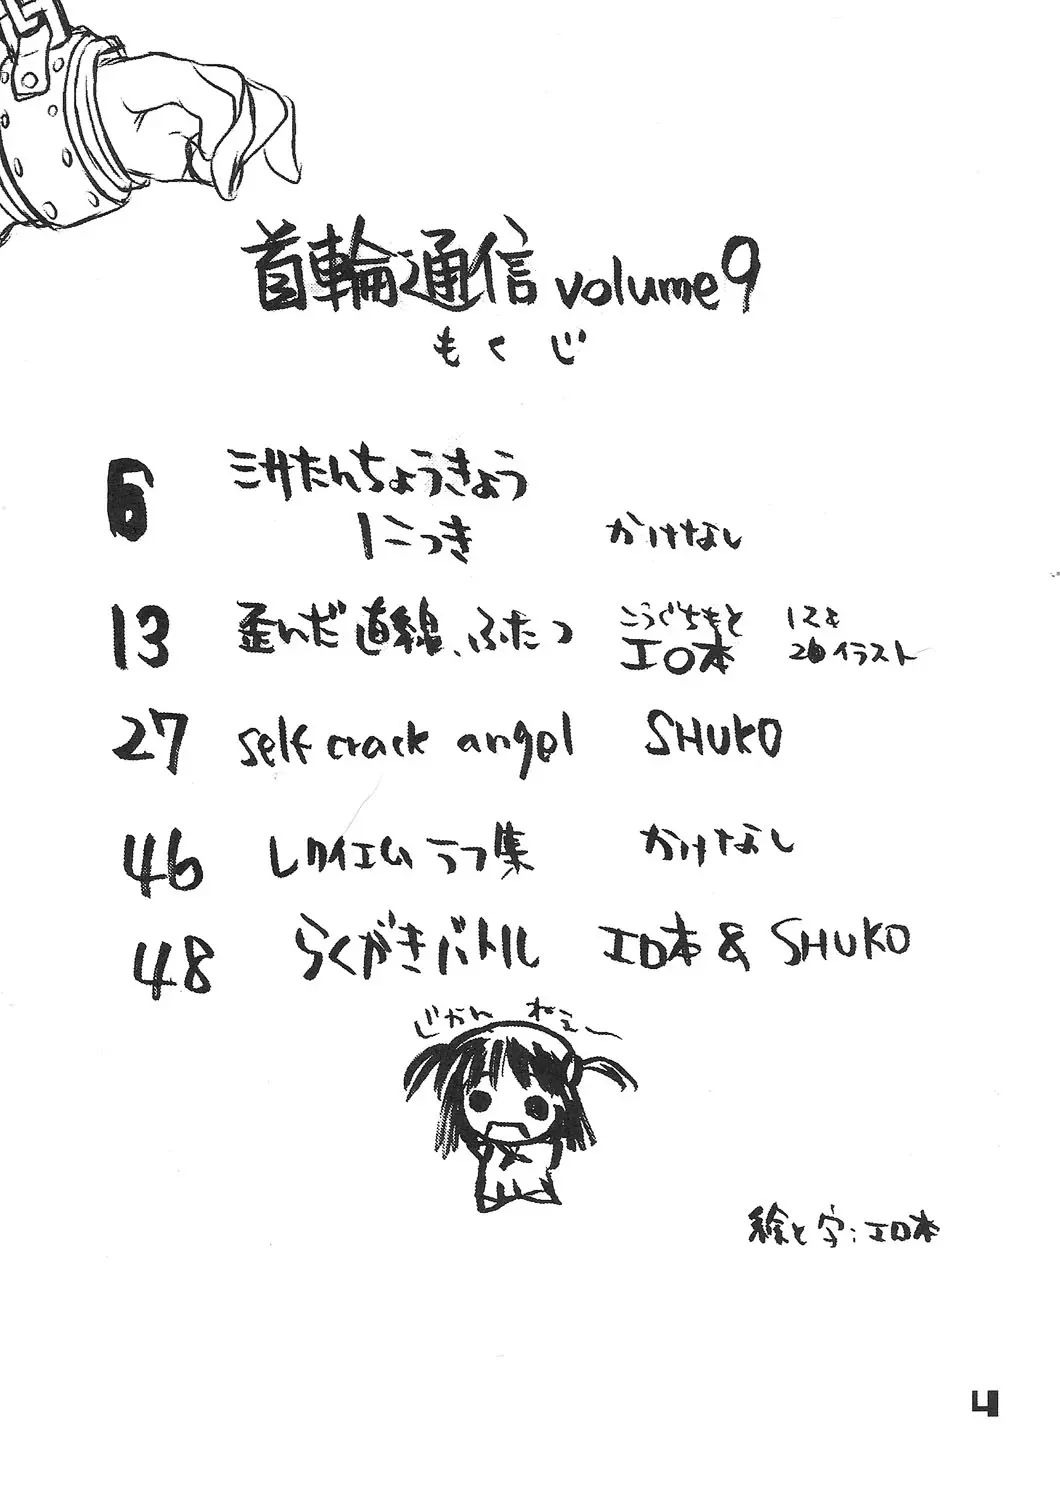 首輪通信 volume9
もくじ
6 三サたんちょうきょう
にっき かけなし
13 歪んだ直線、ふたつ こうぐちもと エロ本 12と 26イラスト
27 self crack angel SHUKO
46 レクイエム ラフ集 かけなし
48 らくがきバトル エロ本 & SHUKO
じかん ねぇ〜
絵と字:エロ本
4